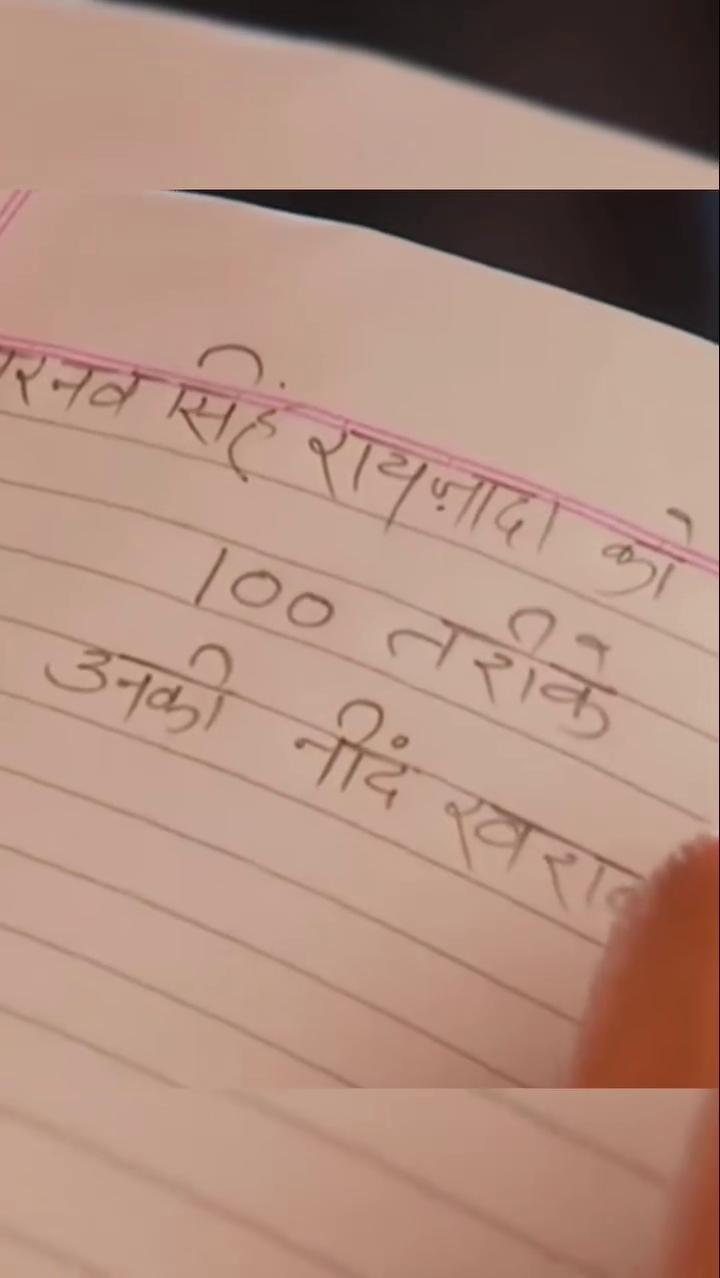 रनव सिंह रायज़ादा को
100 तरीके
उनकी नींद खराब